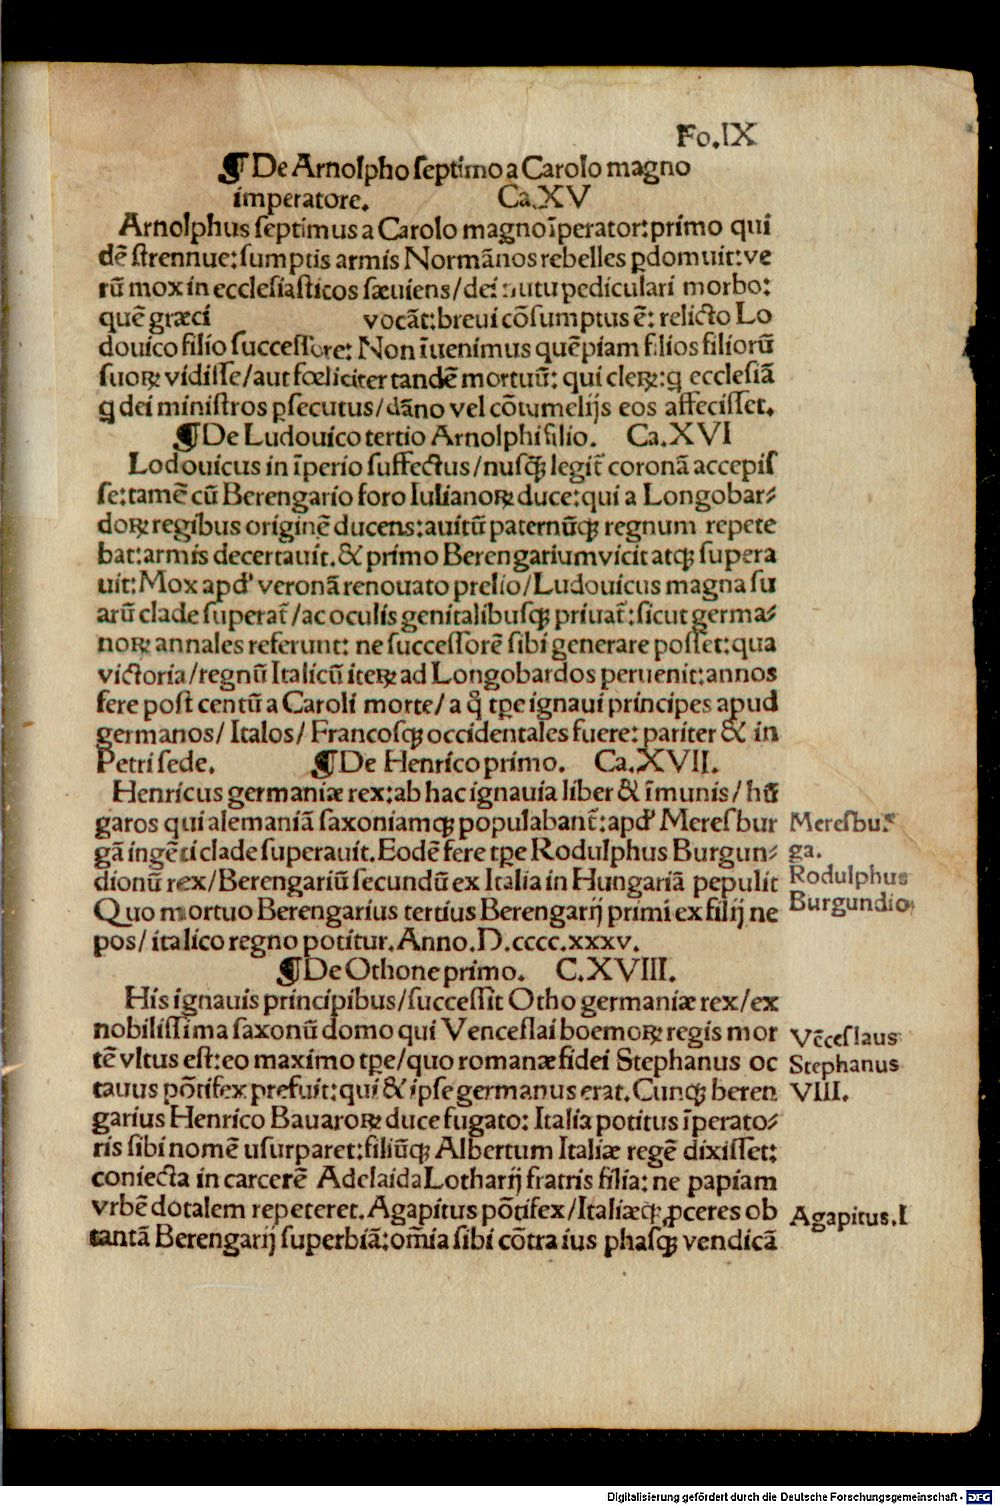 Fo.IX
¶De Arnolpho ſeptimo a Carolo magno
imperatore. Ca.XV
Arnolphus ſeptimus a Carolo magno īperator:primo qui
dē ſtrennue:ſumptis armis Normānos rebelles ꝑdomuit:ve
rū mox in eccleſiaſticos ſæuiens/dei nutu pediculari morbo:
quē græci vocāt:breui cōſumptus ē: relicto Lo
douico filio ſucceſſore: Non īuenimus quēpiam filios filiorū
ſuoꝝ vidiſſe/aut fœliciter tandē mortuū: qui cleꝝ:ꝗ eccleſiā
ꝗ dei miniſtros ꝑſecutus/dāno vel cōtumelijs eos affeciſſet.
¶De Ludouico tertio Arnolphi filio. Ca.XVI
Lodouicus in īperio ſuffectus/nuſꝙ̄ legit̄ coronā accepiſ
ſe:tamē cū Berengario foro Iulianoꝝ duce:qui a Longobar⸗
doꝝ regibus originē ducens:auitū paternūqꝫ regnum repete
bat:armis decertauit.& primo Berengarium vicit atqꝫ ſupera
uit:Mox apd' veronā renouato prelio/Ludouicus magna ſu
arū clade ſuperat̄/ac oculis genitalibuſqꝫ priuat̄:ſicut germa⸗
noꝝ annales referunt: ne ſucceſſorē ſibi generare poſſet:qua
victoria/regnū Italicū iteꝝ ad Longobardos peruenit:annos
fere poſt centū a Caroli morte/ a q̊ tꝑe ignaui principes apud
germanos/ Italos/ Francoſqꝫ occidentales fuere: pariter & in
Petri ſede. ¶De Henrico primo. Ca.XVII.
Henricus germaniæ rex:ab hac ignauia liber & īmunis/ hū
garos qui alemaniā ſaxoniamqꝫ populabant̄:apd' Mereſbur
gā ingēti clade ſuperauit.Eodē fere tꝑe Rodulphus Burgun⸗
dionū rex/Berengariū ſecundū ex Italia in Hungariā pepulit
Quo mortuo Berengarius tertius Berengarij primi ex filij ne
pos/ italico regno potitur.Anno.D.cccc.xxxv.
Mereſbur
ga.
Rodulphus
Burgundio
¶De Othone primo. C.XVIII.
His ignauis principibus/ſucceſſit Otho germaniæ rex/ex
nobiliſſima ſaxonū domo qui Venceſlai boemoꝝ regis mor
tē vltus eſt:eo maximo tꝑe/quo romanæ fidei Stephanus oc
tauus pōtifex prefuit:qui & ipſe germanus erat.Cunqꝫ beren
garius Henrico Bauaroꝝ duce fugato: Italia potitus īperato⸗
ris ſibi nomē uſurparet:filiūqꝫ Albertum Italiæ regē dixiſſet:
coniecta in carcerē Adelaida Lotharij fratris filia: ne papiam
vrbē dotalem repeteret.Agapitus pōtifex/Italiæqꝫ ꝓceres ob
tantā Berengarij ſuperbiā:om̄ia ſibi cōtra ius phaſqꝫ vendicā
Vēceſlaus
Stephanus
VIII.
Agapitus.I
Digitalisierung gefördert durch die Deutsche Forschungsgemeinschaft - DFG